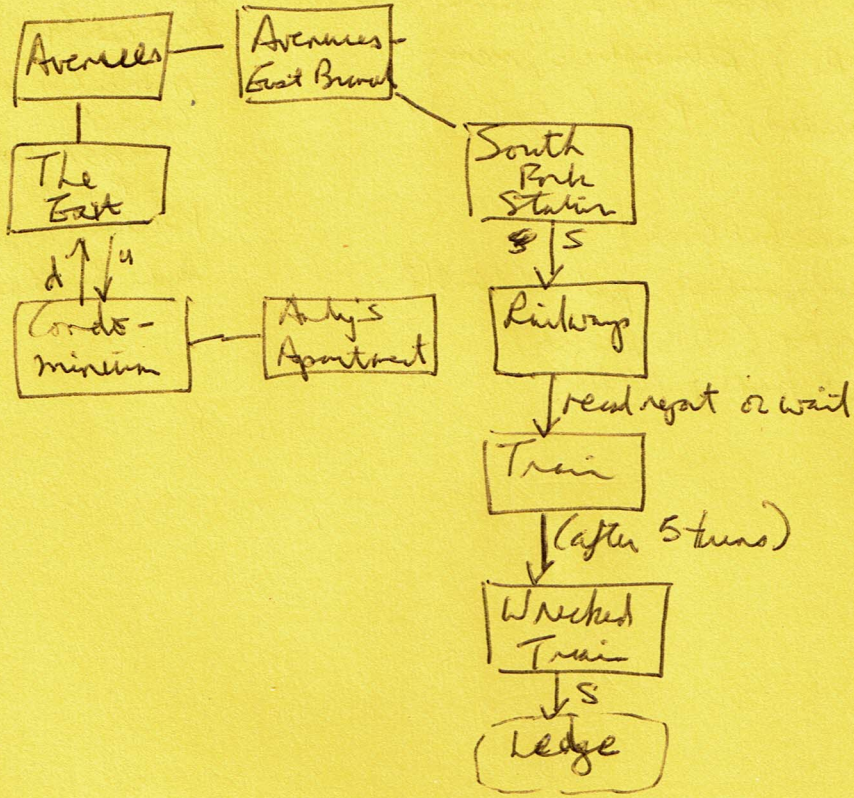 Avenues
Avenues
East Branch
The
East
South
Park
Station
S
d
u
Condo-
minium
Andy's
Apartment
Railways
read report or wait
Train
(after 5 turns)
Wrecked
Train
S
Ledge